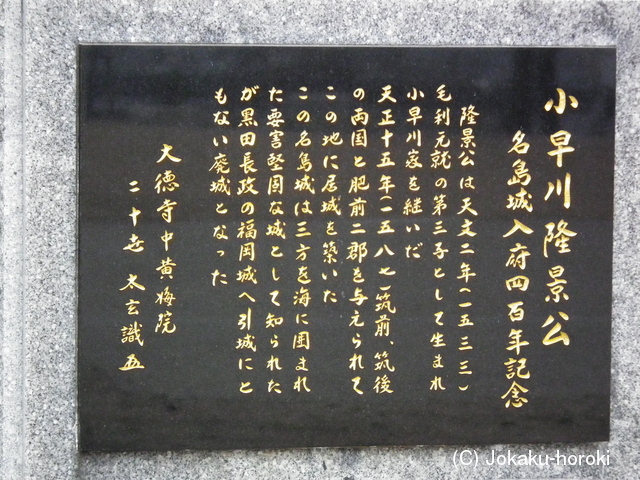 小早川隆景公
名島城入府四百年記念
隆景公は天文二年(一五三三)
毛利元就の第三子として生まれ
小早川家を継いだ
天正十五年(一五八七)筑前、筑後
の両国と肥前二郡を与えられて
この地に居城を築いた
この名島城は三方を海に囲まれ
た要害堅固な城として知られた
が黒田長政の福岡城へ引城にと
もない廃城となった
大徳寺中黄梅院
二十世 太玄識
(C) Jokaku-horoki